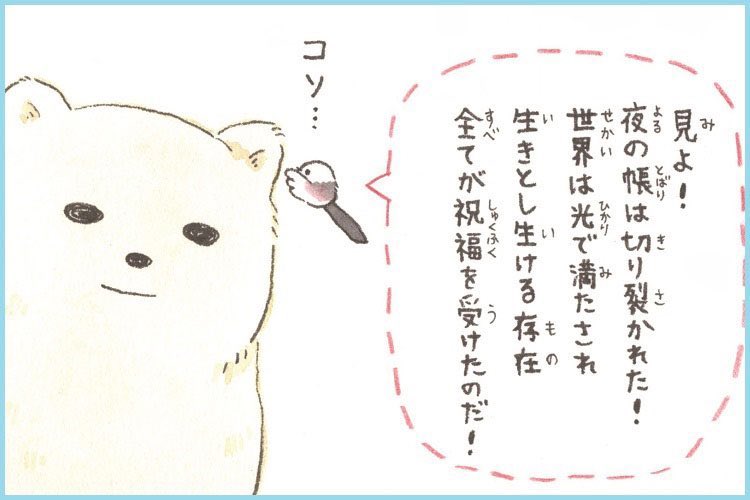 見よ！
夜の帳は切り裂かれた！
世界は光で満たされ
生きとし生ける存在
全てが祝福を受けたのだ！
コソ…